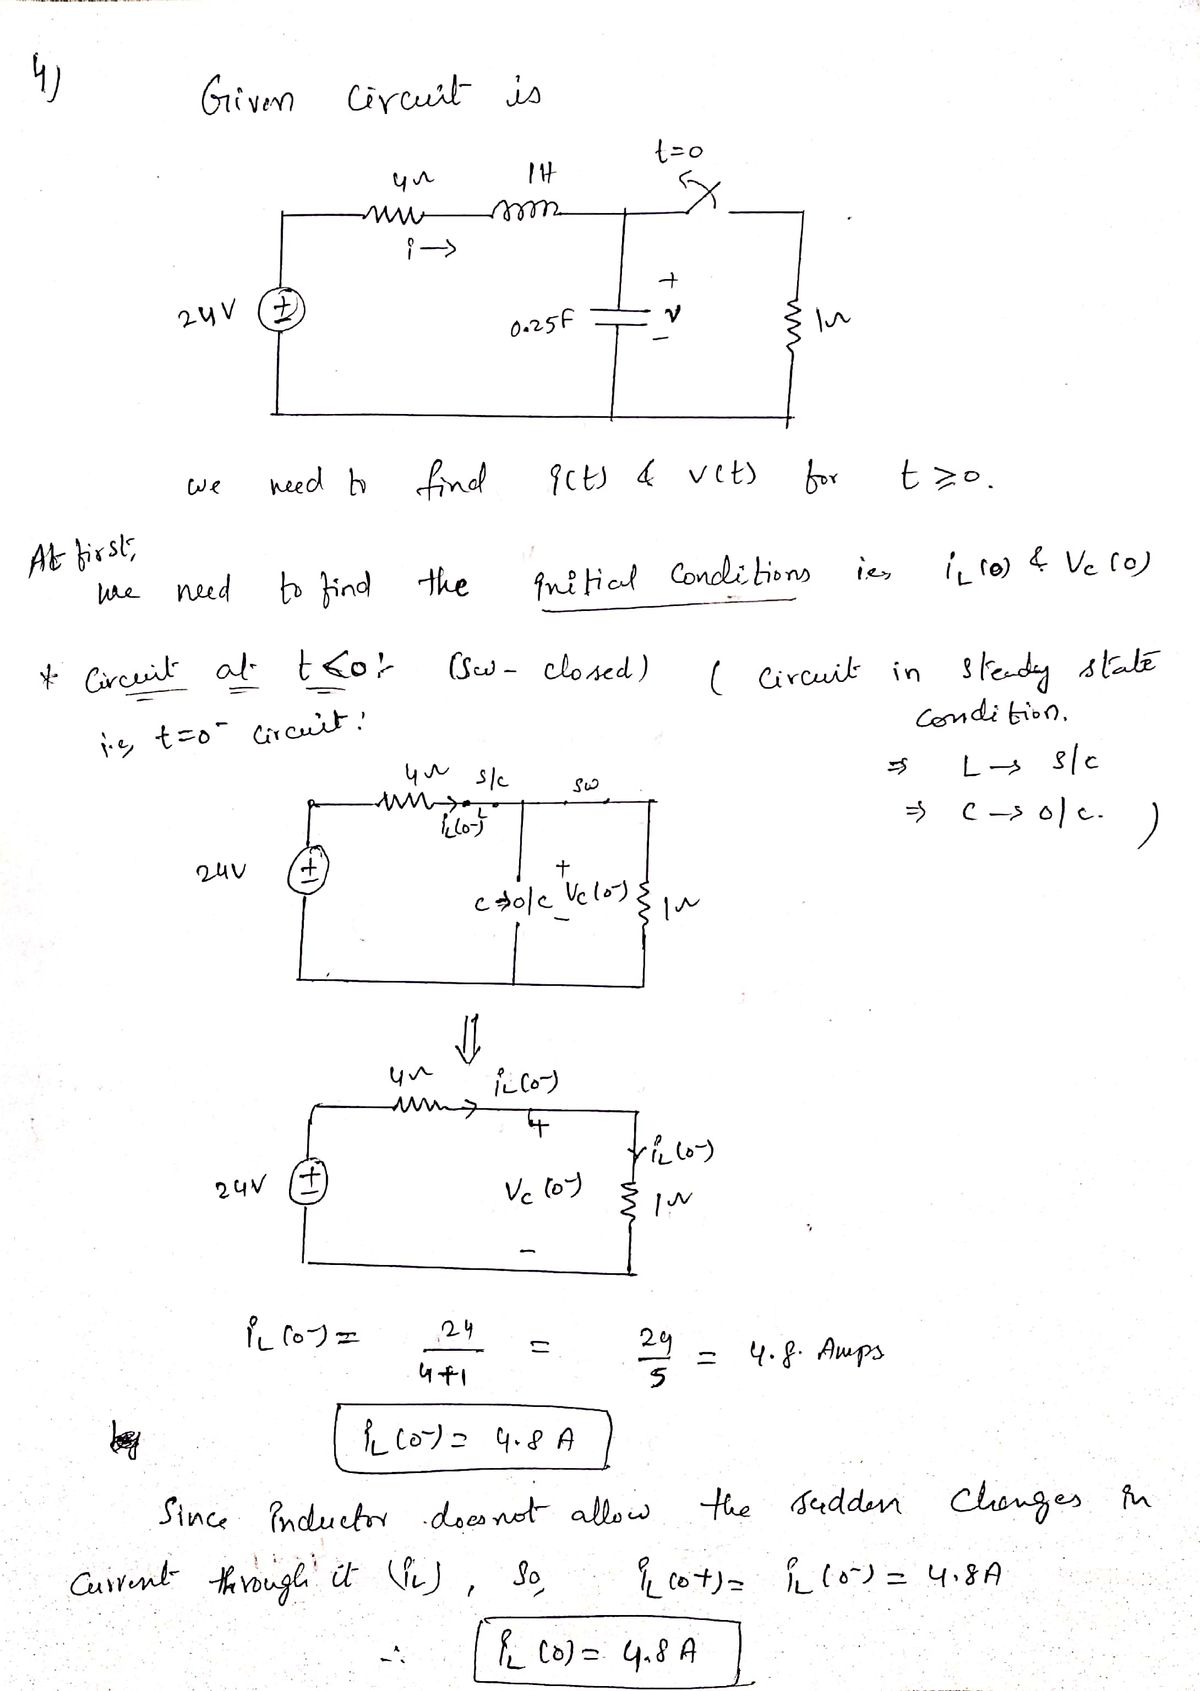 4)
Given circuit is
t=0
4Ω 1H
i→
24V
0.25F
+
v
-
1Ω
we need to find i(t) & v(t) for t ≥ 0.
At first,
we need to find the initial conditions ie, iL(0) & Vc(0)
* Circuit at t<0:- (Sw - closed) ( Circuit in steady state
condition.
i.e, t=0⁻ circuit:
⇒ L → s/c
⇒ C → o/c. )
4Ω s/c sw
iL(0⁻)
24V
+
C→o/c Vc(0⁻)
-
1Ω
⇓
4Ω iL(0⁻)
+
iL(0⁻)
24V
Vc(0⁻)
1Ω
-
iL(0⁻) = 24/4+1 = 24/5 = 4.8. Amps
iL(0⁻) = 4.8 A
Since inductor does not allow the sudden changes in
current through it (iL), So, iL(0+) = iL(0⁻) = 4.8A
∴ iL(0) = 4.8 A